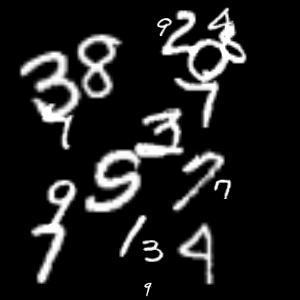 9 2 4
3 8 0 8
7 7
3
5 7 7
9
7 1 3 4
9